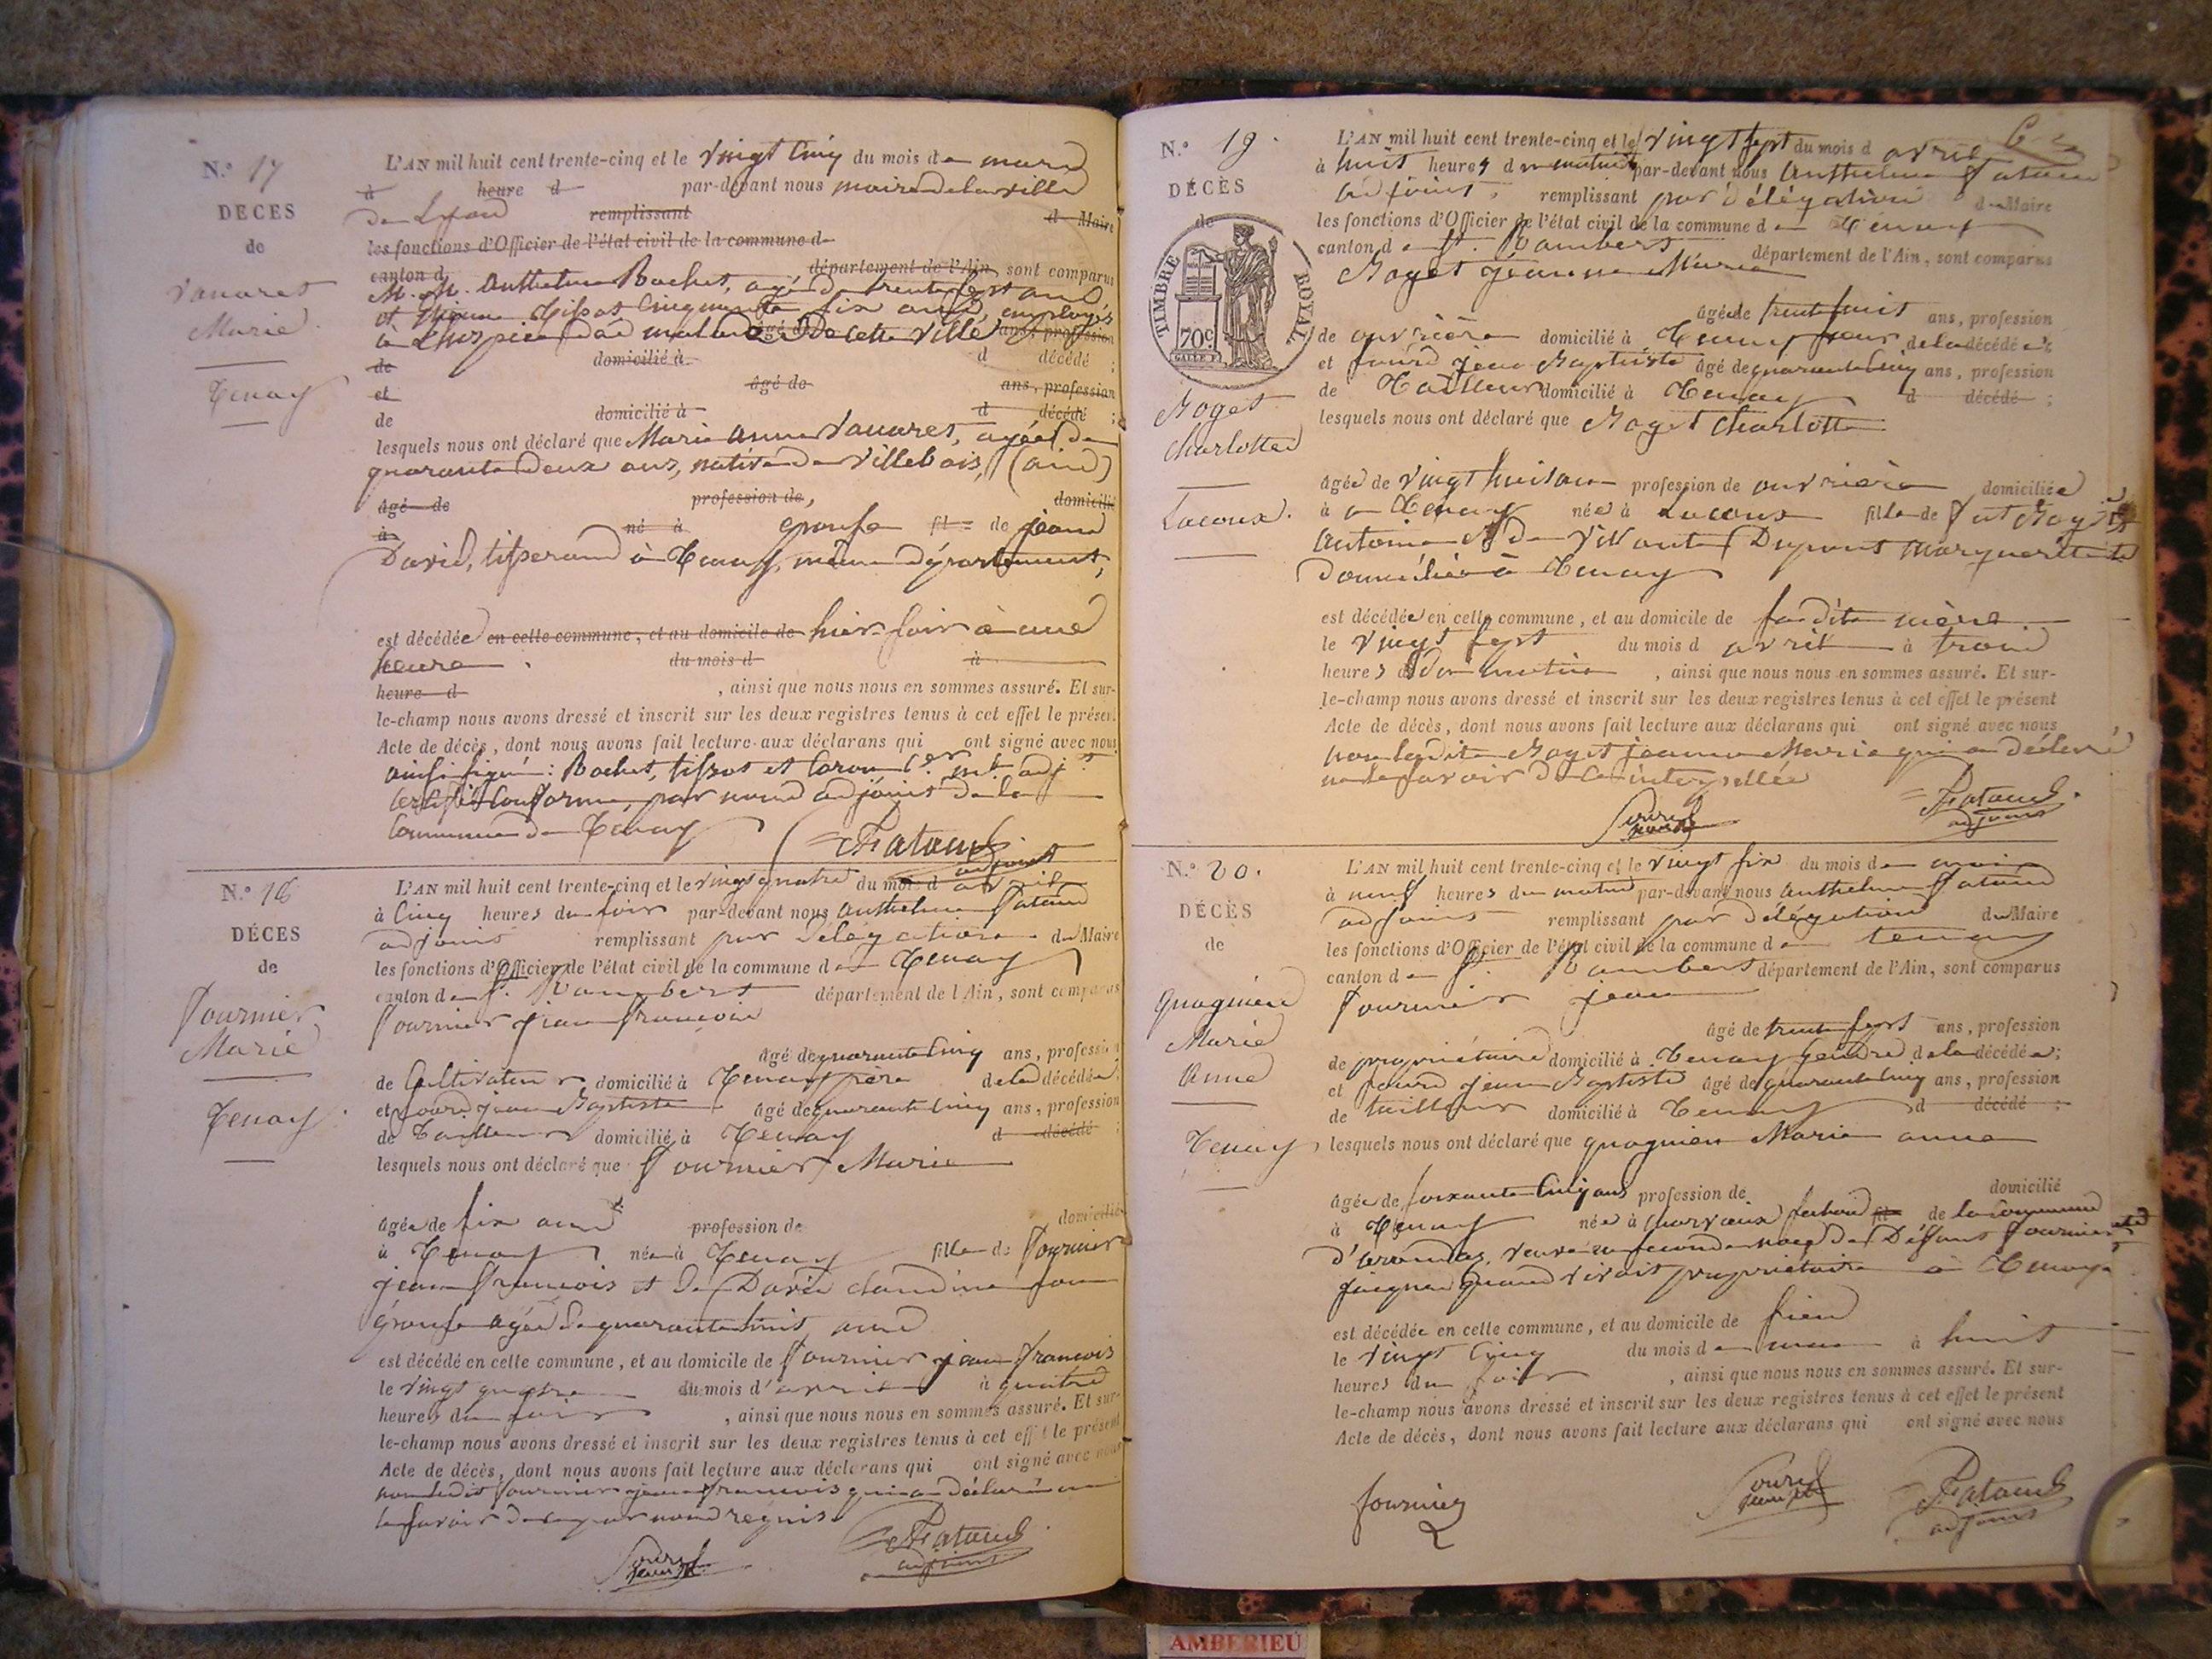 N.° 17
DECES
de
Vauares
Marie
Tenay
L'AN mil huit cent trente-cinq et le vingt cinq du mois de mars
à heure d par-devant nous maire de la ville
de Lyon remplissant d Maire
les fonctions d'Officier de l'état civil de la commune d
canton d département de l'Ain, sont comparus
M. M. Anthelme Bochet, agé de trente sept ans
et Tissot cinquante six ans, employés
à L'hospice de de cette ville âgé de ans, profession
de domicilié à d décédé ;
et âgé de ans, profession
de domicilié à d décédé ;
lesquels nous ont déclaré que Marie Anne Vauares, agée de
quarante deux ans, native de Villebois, (ain)
âgé de profession de, domicilié
à né à epouse fil de jean
David, tisserand à Tenay, même département,
est décédée en cette commune, et au domicile de hier soir à une
heure du mois d à
heure d , ainsi que nous nous en sommes assuré. Et sur-
le-champ nous avons dressé et inscrit sur les deux registres tenus à cet effet le présent
Acte de décès, dont nous avons fait lecture aux déclarans qui ont signé avec nous
ainsi signé : Bochet, tissot et
Certifié Conforme, par nous adjoint de la
Commune de Tenay
Fataud
adjoint
N.° 18
DÉCES
de
Fournier
Marie
Tenay
L'AN mil huit cent trente-cinq et le vingt quatre du mois d avril
à Cinq heures du soir par-devant nous anthelme Fataud
adjoint remplissant par délégation du Maire
les fonctions d'Officier de l'état civil de la commune de Tenay
canton de St. Rambert département de l'Ain, sont comparus
Fournier jean francois
âgé de quarante cinq ans, profession
de Cultivateur domicilié à Tenay père de la décédée,
et jean Baptiste âgé de quarante cinq ans, profession
de Tailleur domicilié à Tenay d décédé ;
lesquels nous ont déclaré que Fournier Marie
âgée de six ans profession de domicilié
à Tenay née à Tenay fille de Fournier
jean francois et de David claudine son
épouse agée de quarante huit ans
est décédé en cette commune, et au domicile de Fournier jean francois
le vingt quatre du mois d'avril à quatre
heures du soir , ainsi que nous nous en sommes assuré. Et sur-
le-champ nous avons dressé et inscrit sur les deux registres tenus à cet effet le présent
Acte de décès, dont nous avons fait lecture aux déclarans qui ont signé avec nous
non ledit Fournier jean francois qui a déclaré ne
le savoir de ce par nous requis
Fataud
adjoint
N.° 19.
DÉCÈS
de
TIMBRE ROYAL
70c
Boget
Charlotte
Lacoux.
L'AN mil huit cent trente-cinq et le vingt sept du mois d avril
à huit heures du matin par-devant nous Anthelme Fataud
adjoint, remplissant par délégation du Maire
les fonctions d'Officier de l'état civil de la commune de Tenay
canton de St. Rambert département de l'Ain, sont comparus
Boget jeanne Marie
âgée de trente huit ans, profession
de ouvrière domicilié à Tenay soeur de la décédée ;
et jean Baptiste âgé de quarante cinq ans, profession
de Tailleur domicilié à Tenay d décédé ;
lesquels nous ont déclaré que Boget Charlotte
âgée de vingt huit ans profession de ouvrière domiciliée
à Tenay née à Lacoux fille de fut Boget
Antoine et de vivante Dupont Marguerite
domiciliée à Tenay
est décédée en cette commune, et au domicile de sa dite mère
le vingt sept du mois d avril à trois
heures du matin , ainsi que nous nous en sommes assuré. Et sur-
le-champ nous avons dressé et inscrit sur les deux registres tenus à cet effet le présent
Acte de décès, dont nous avons fait lecture aux déclarans qui ont signé avec nous
non ladite Boget jeanne Marie qui a déclaré
ne le savoir de ce interpellée
Fataud
adjoint
N.° 20.
DÉCÈS
de
quagnien
Marie
Anne
Tenay
L'AN mil huit cent trente-cinq et le vingt six du mois de mai
à neuf heures du matin par-devant nous anthelme Fataud
adjoint remplissant par délégation du Maire
les fonctions d'Officier de l'état civil de la commune de tenay
canton de St. Rambert département de l'Ain, sont comparus
Fournier jean
âgé de trente sept ans, profession
de propriétaire domicilié à Tenay gendre de la décédée ;
et jean Baptiste âgé de quarante cinq ans, profession
de tailleur domicilié à Tenay d décédé ;
lesquels nous ont déclaré que quagnien Marie anne
âgée de soixante cinq ans profession de domicilié
à Tenay née à fil de la commune
d'arandas, veuve en seconde noce de Défunt Fournier
quand vivait propriétaire à Tenay
est décédée en cette commune, et au domicile de sien
le vingt cinq du mois de mai à huit
heures du soir , ainsi que nous nous en sommes assuré. Et sur-
le-champ nous avons dressé et inscrit sur les deux registres tenus à cet effet le présent
Acte de décès, dont nous avons fait lecture aux déclarans qui ont signé avec nous
fournier
Fataud
adjoint
AMBERIEU